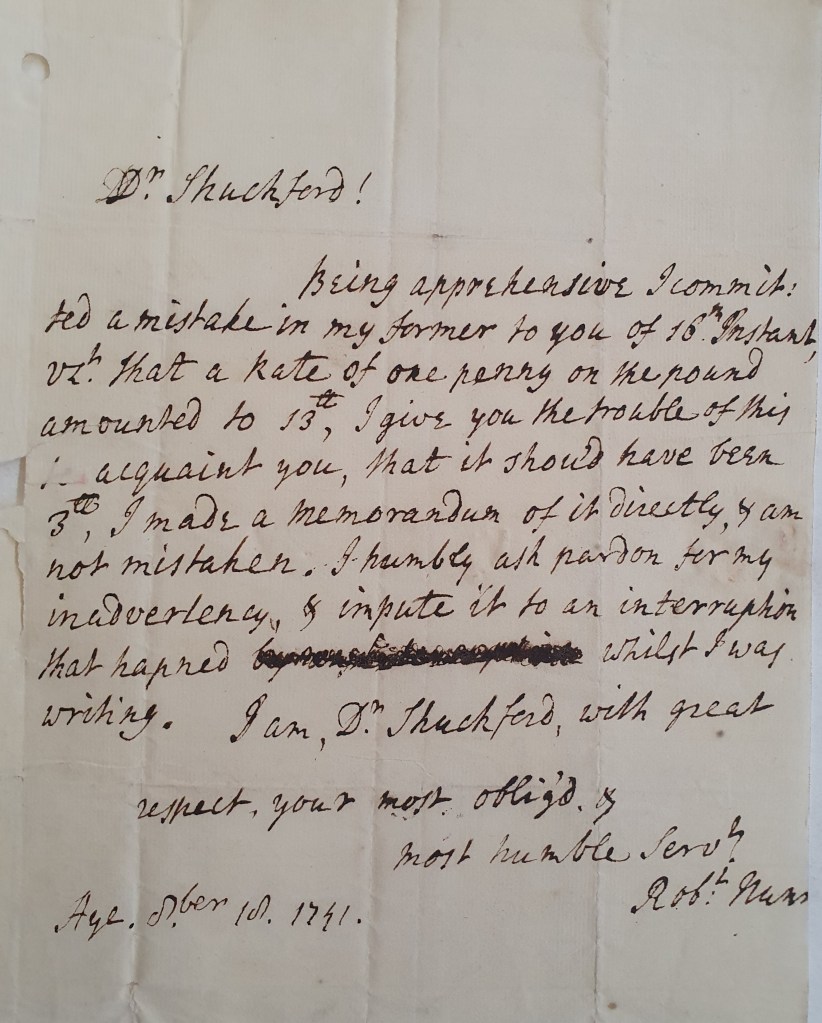 Dr. Shuckford!
Being apprehensive I commit:
ted a mistake in my former to you of 16th Instant,
vzt. that a Rate of one penny on the pound
amounted to 13ll, I give you the trouble of this
acquaint you, that it shou'd have been
3ll, I made a memorandum of it directly, & am
not mistaken. I humbly ask pardon for my
inadvertency, & impute it to an interruption
that hapned whilst I was
writing. I am, Dr. Shuckford, with great
respect, your most oblig'd. &
most humble Servt.
Robt.
Aye. 8ber 18. 1741.